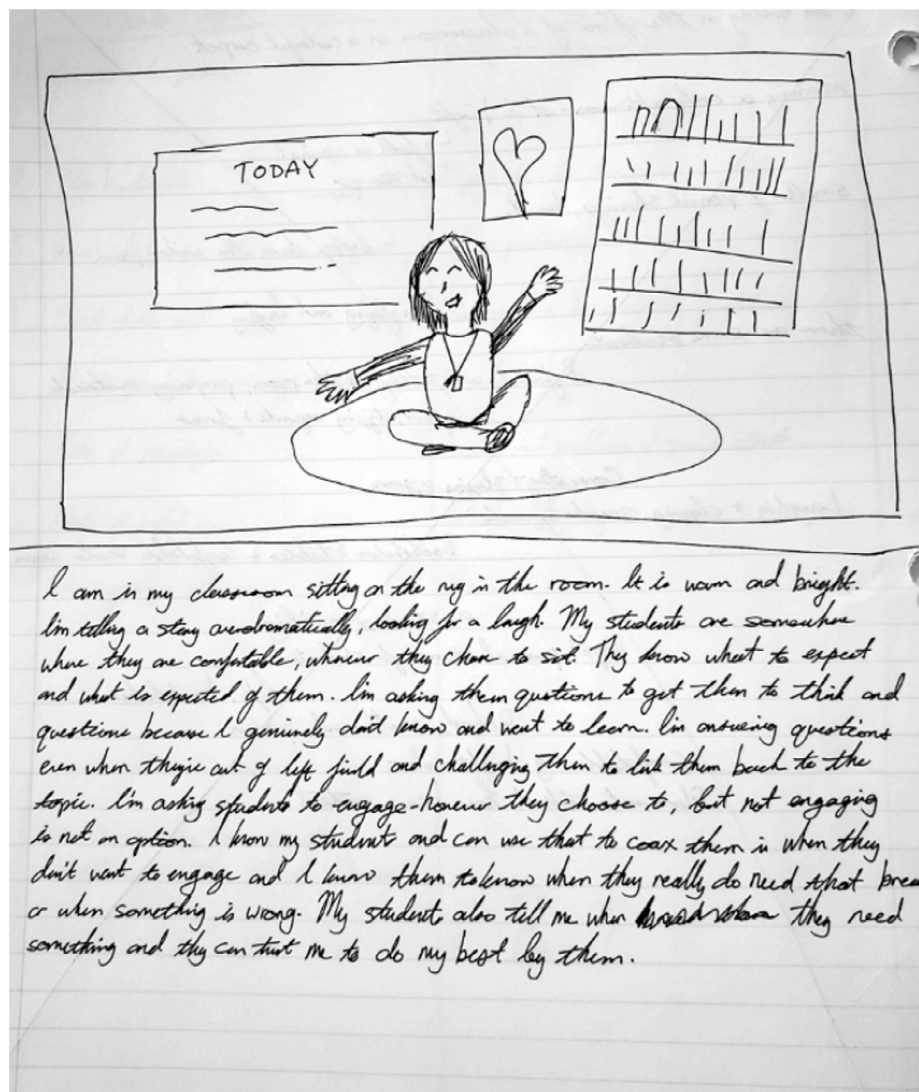 TODAY
I am in my classroom sitting on the rug in the room. It is warm and bright.
I'm telling a story overdramatically, looking for a laugh. My students are somewhere
where they are comfortable, wherever they chose to sit. They know what to expect
and what is expected of them. I'm asking them questions to get them to think and
questions because I genuinely don't know and want to learn. I'm answering questions
even when they're out of left field and challenging them to link them back to the
topic. I'm asking students to engage-however they choose to, but not engaging
is not an option. I know my students and can use that to coax them in when they
don't want to engage and I know them to know when they really do need that
or when something is wrong. My students also tell me when they need
something and they can trust me to do my best by them.